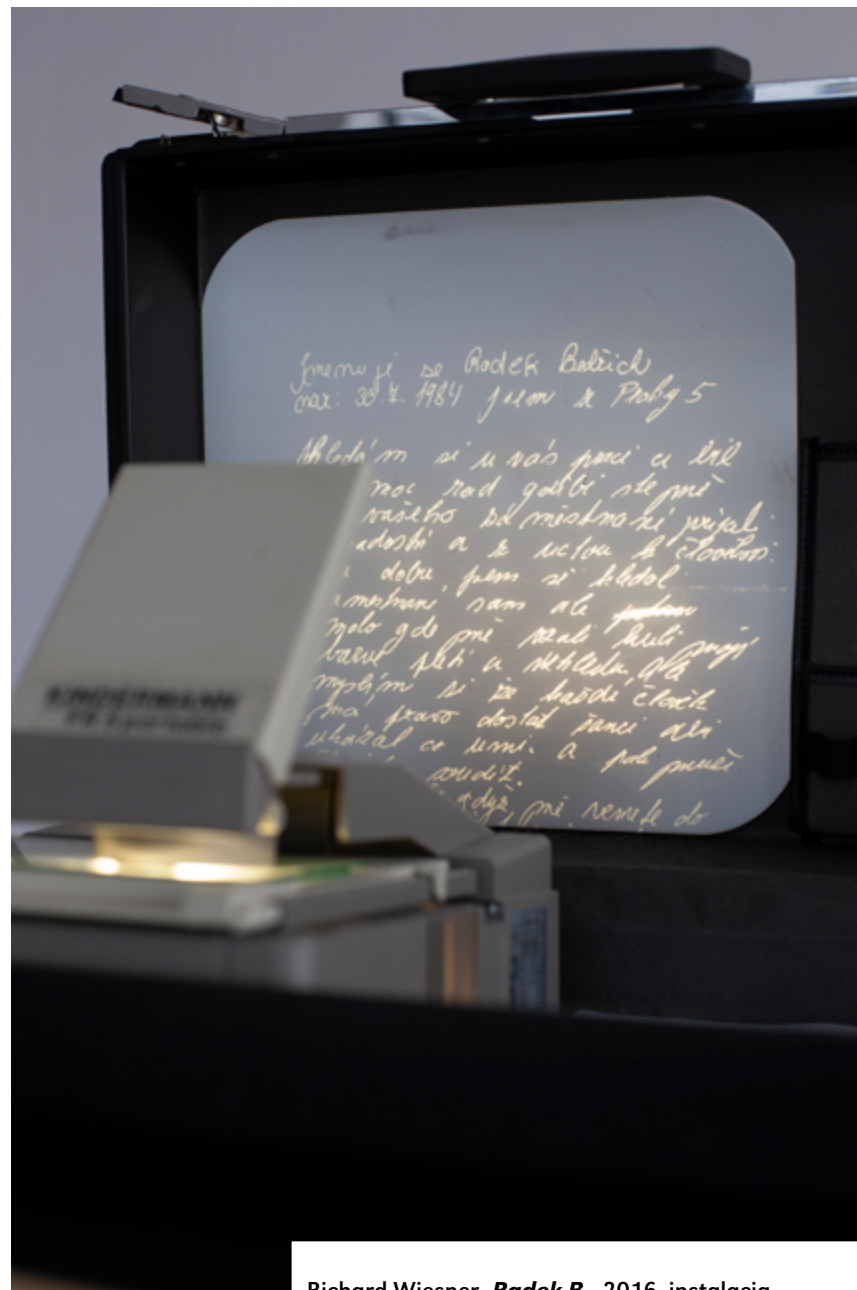 Jmenuji se Radek Bedřich
nar: 30.7. 1984 jsem z Prahy 5
Hledám si u vás praci a bil
moc rad gdibi ste mě
vašeho za městnaní prijali
adosti a z uctou k člověku
dobu jsem si hledal
městnani sam ale
malo gdo mě vzali kuli moji
barvě pleti a vzhledu, ale
myslim si že každi člověk
ma pravo dostat šanci abi
ukázal co umi. a pak
soudit.
když mě vemete do
KINDERMANN
Richard Wiesner, Radek B., 2016, instalacja